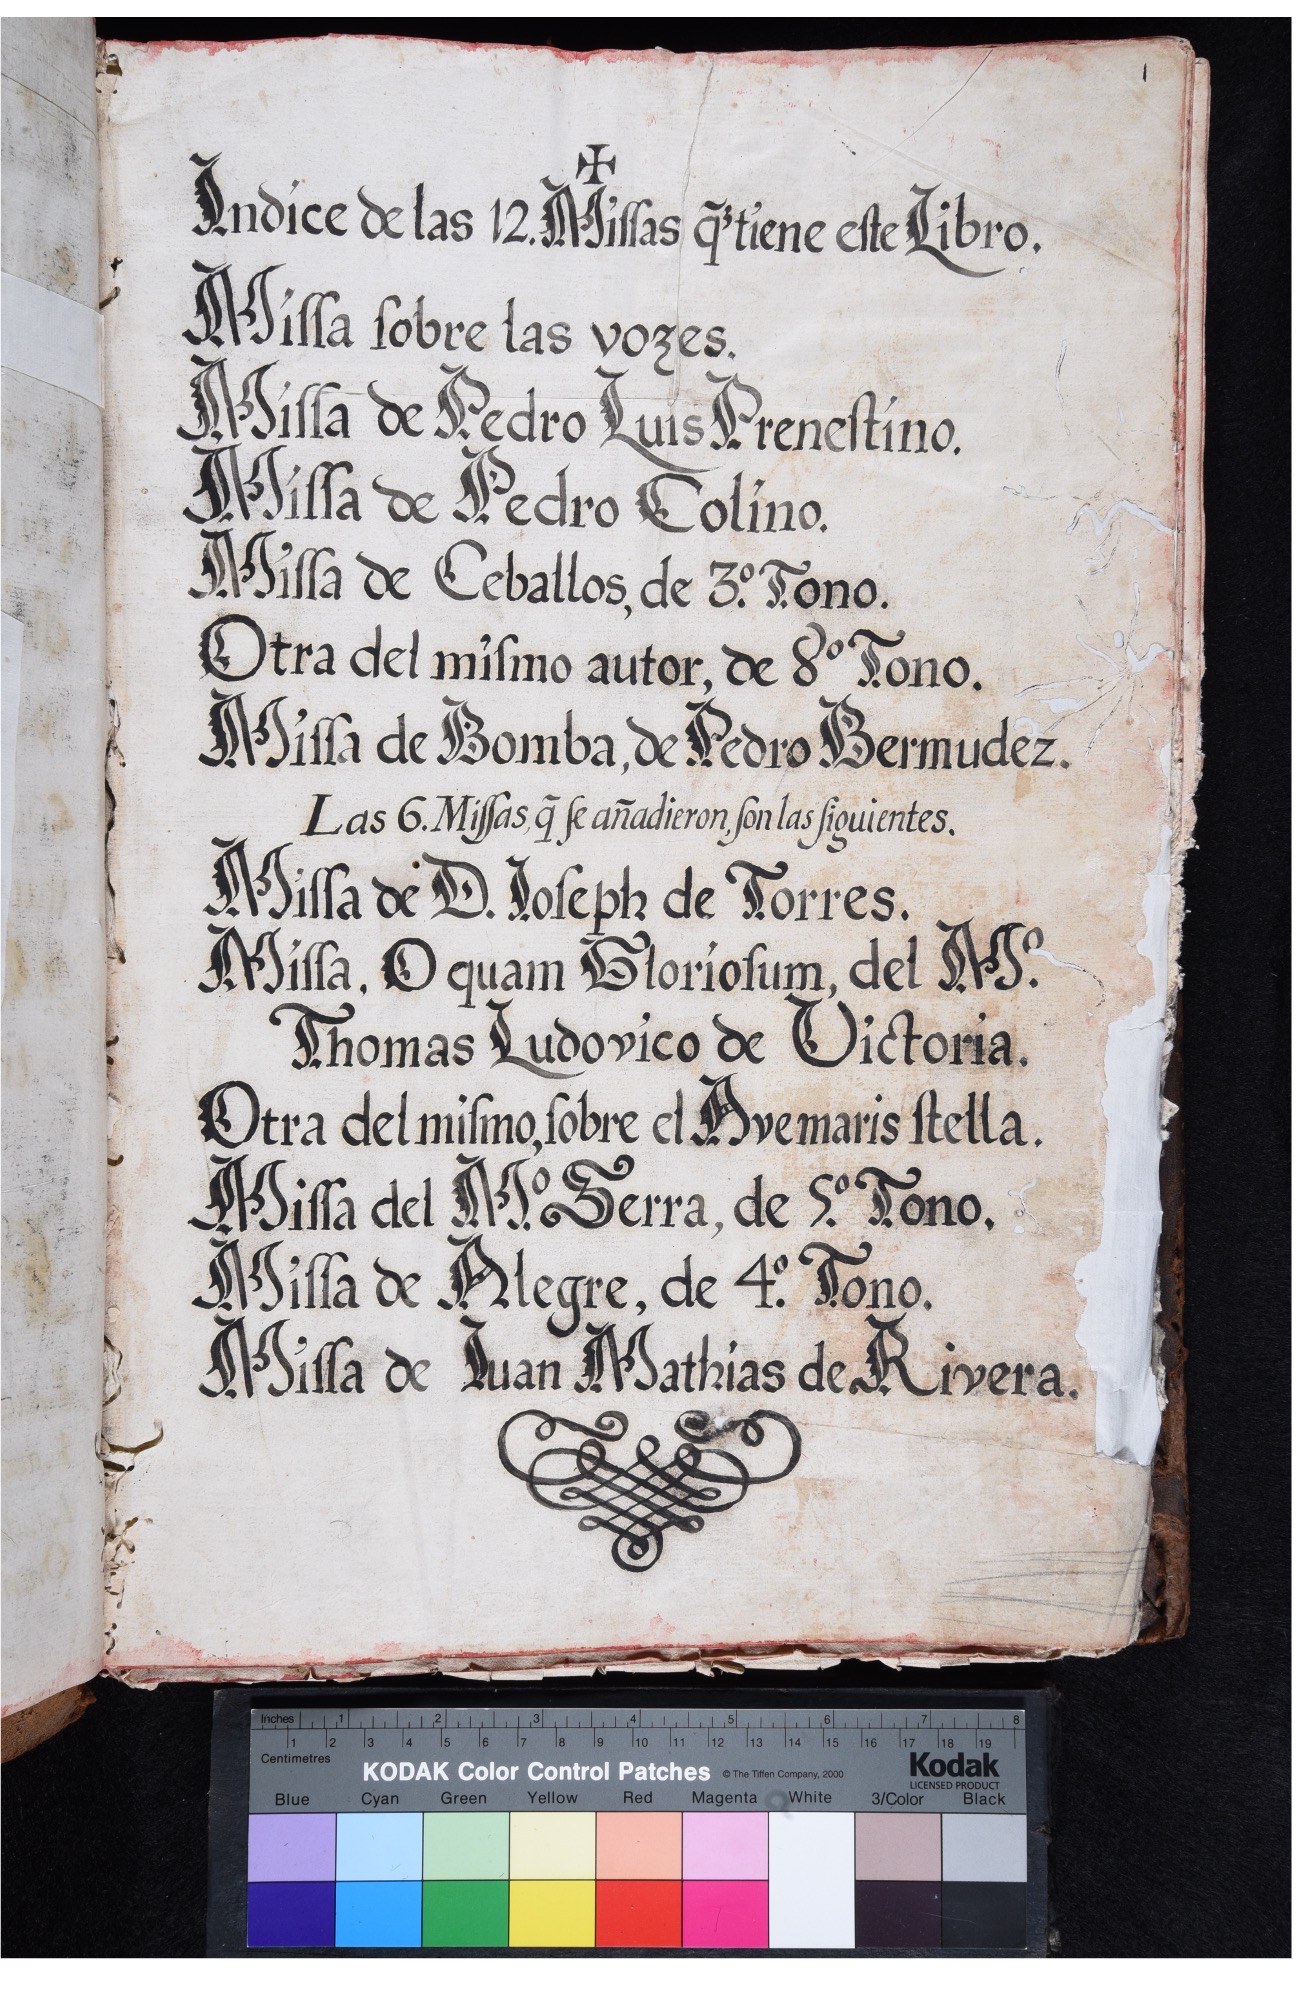 1
✠
Indice de las 12. Missas q̃ tiene este Libro.
Missa sobre las vozes.
Missa de Pedro Luis Prenestino.
Missa de Pedro Colino.
Missa de Ceballos, de 3.º Tono.
Otra del mismo autor, de 8º Tono.
Missa de Bomba, de Pedro Bermudez.
Las 6. Missas, q̃ se añadieron, son las siguientes.
Missa de D. Ioseph de Torres.
Missa, O quam Gloriosum, del Mº.
Thomas Ludovico de Victoria.
Otra del mismo, sobre el Ave maris stella.
Missa del Mº. Serra, de 5.º Tono.
Missa de Alegre, de 4.º Tono.
Missa de Iuan Mathias de Rivera.
Inches 1 2 3 4 5 6 7 8
1 2 3 4 5 6 7 8 9 10 11 12 13 14 15 16 17 18 19
Centimetres
KODAK Color Control Patches © The Tiffen Company, 2000 Kodak
LICENSED PRODUCT
Blue Cyan Green Yellow Red Magenta White 3/Color Black